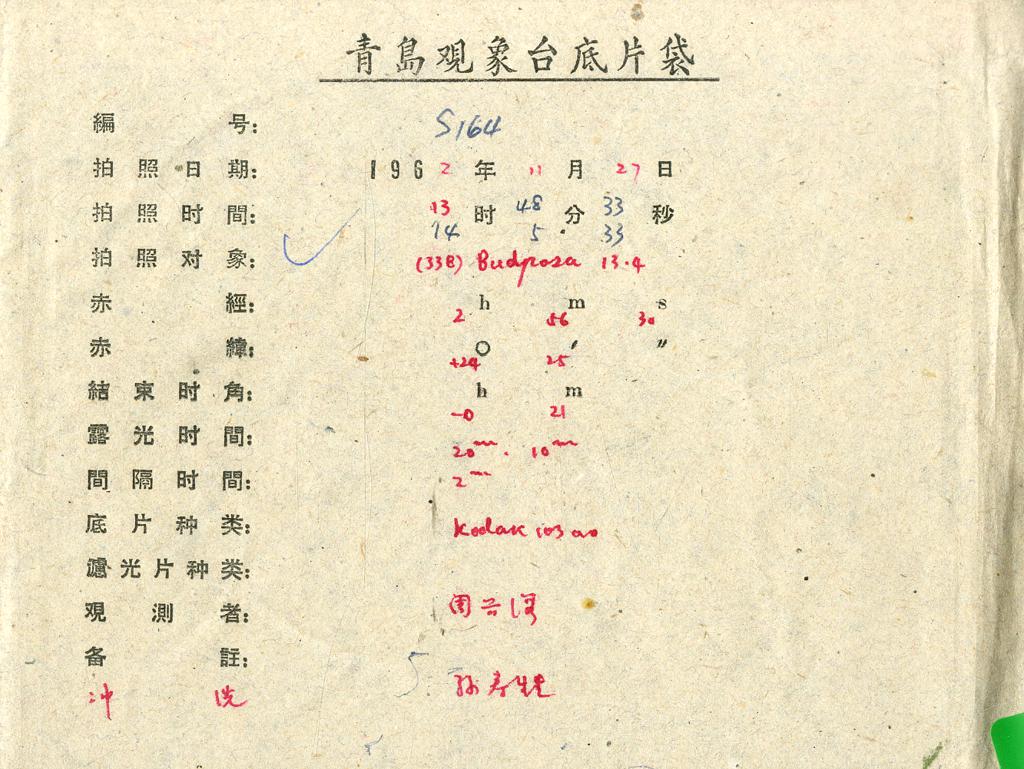 青島观象台底片袋
編号: S164
拍照日期: 1962年11月27日
拍照时間: 13时48分33秒
14 5 33
拍照对象: (338) Budrosa 13.4
赤經: 2h 56m 30s
赤緯: +24° 25′ ″
結束时角: -0h 21m
露光时間: 20m. 10m
間隔时間: 2m
底片种类: Kodak 103 ao
濾光片种类:
观測者: 周
备註:
冲洗 孙寿